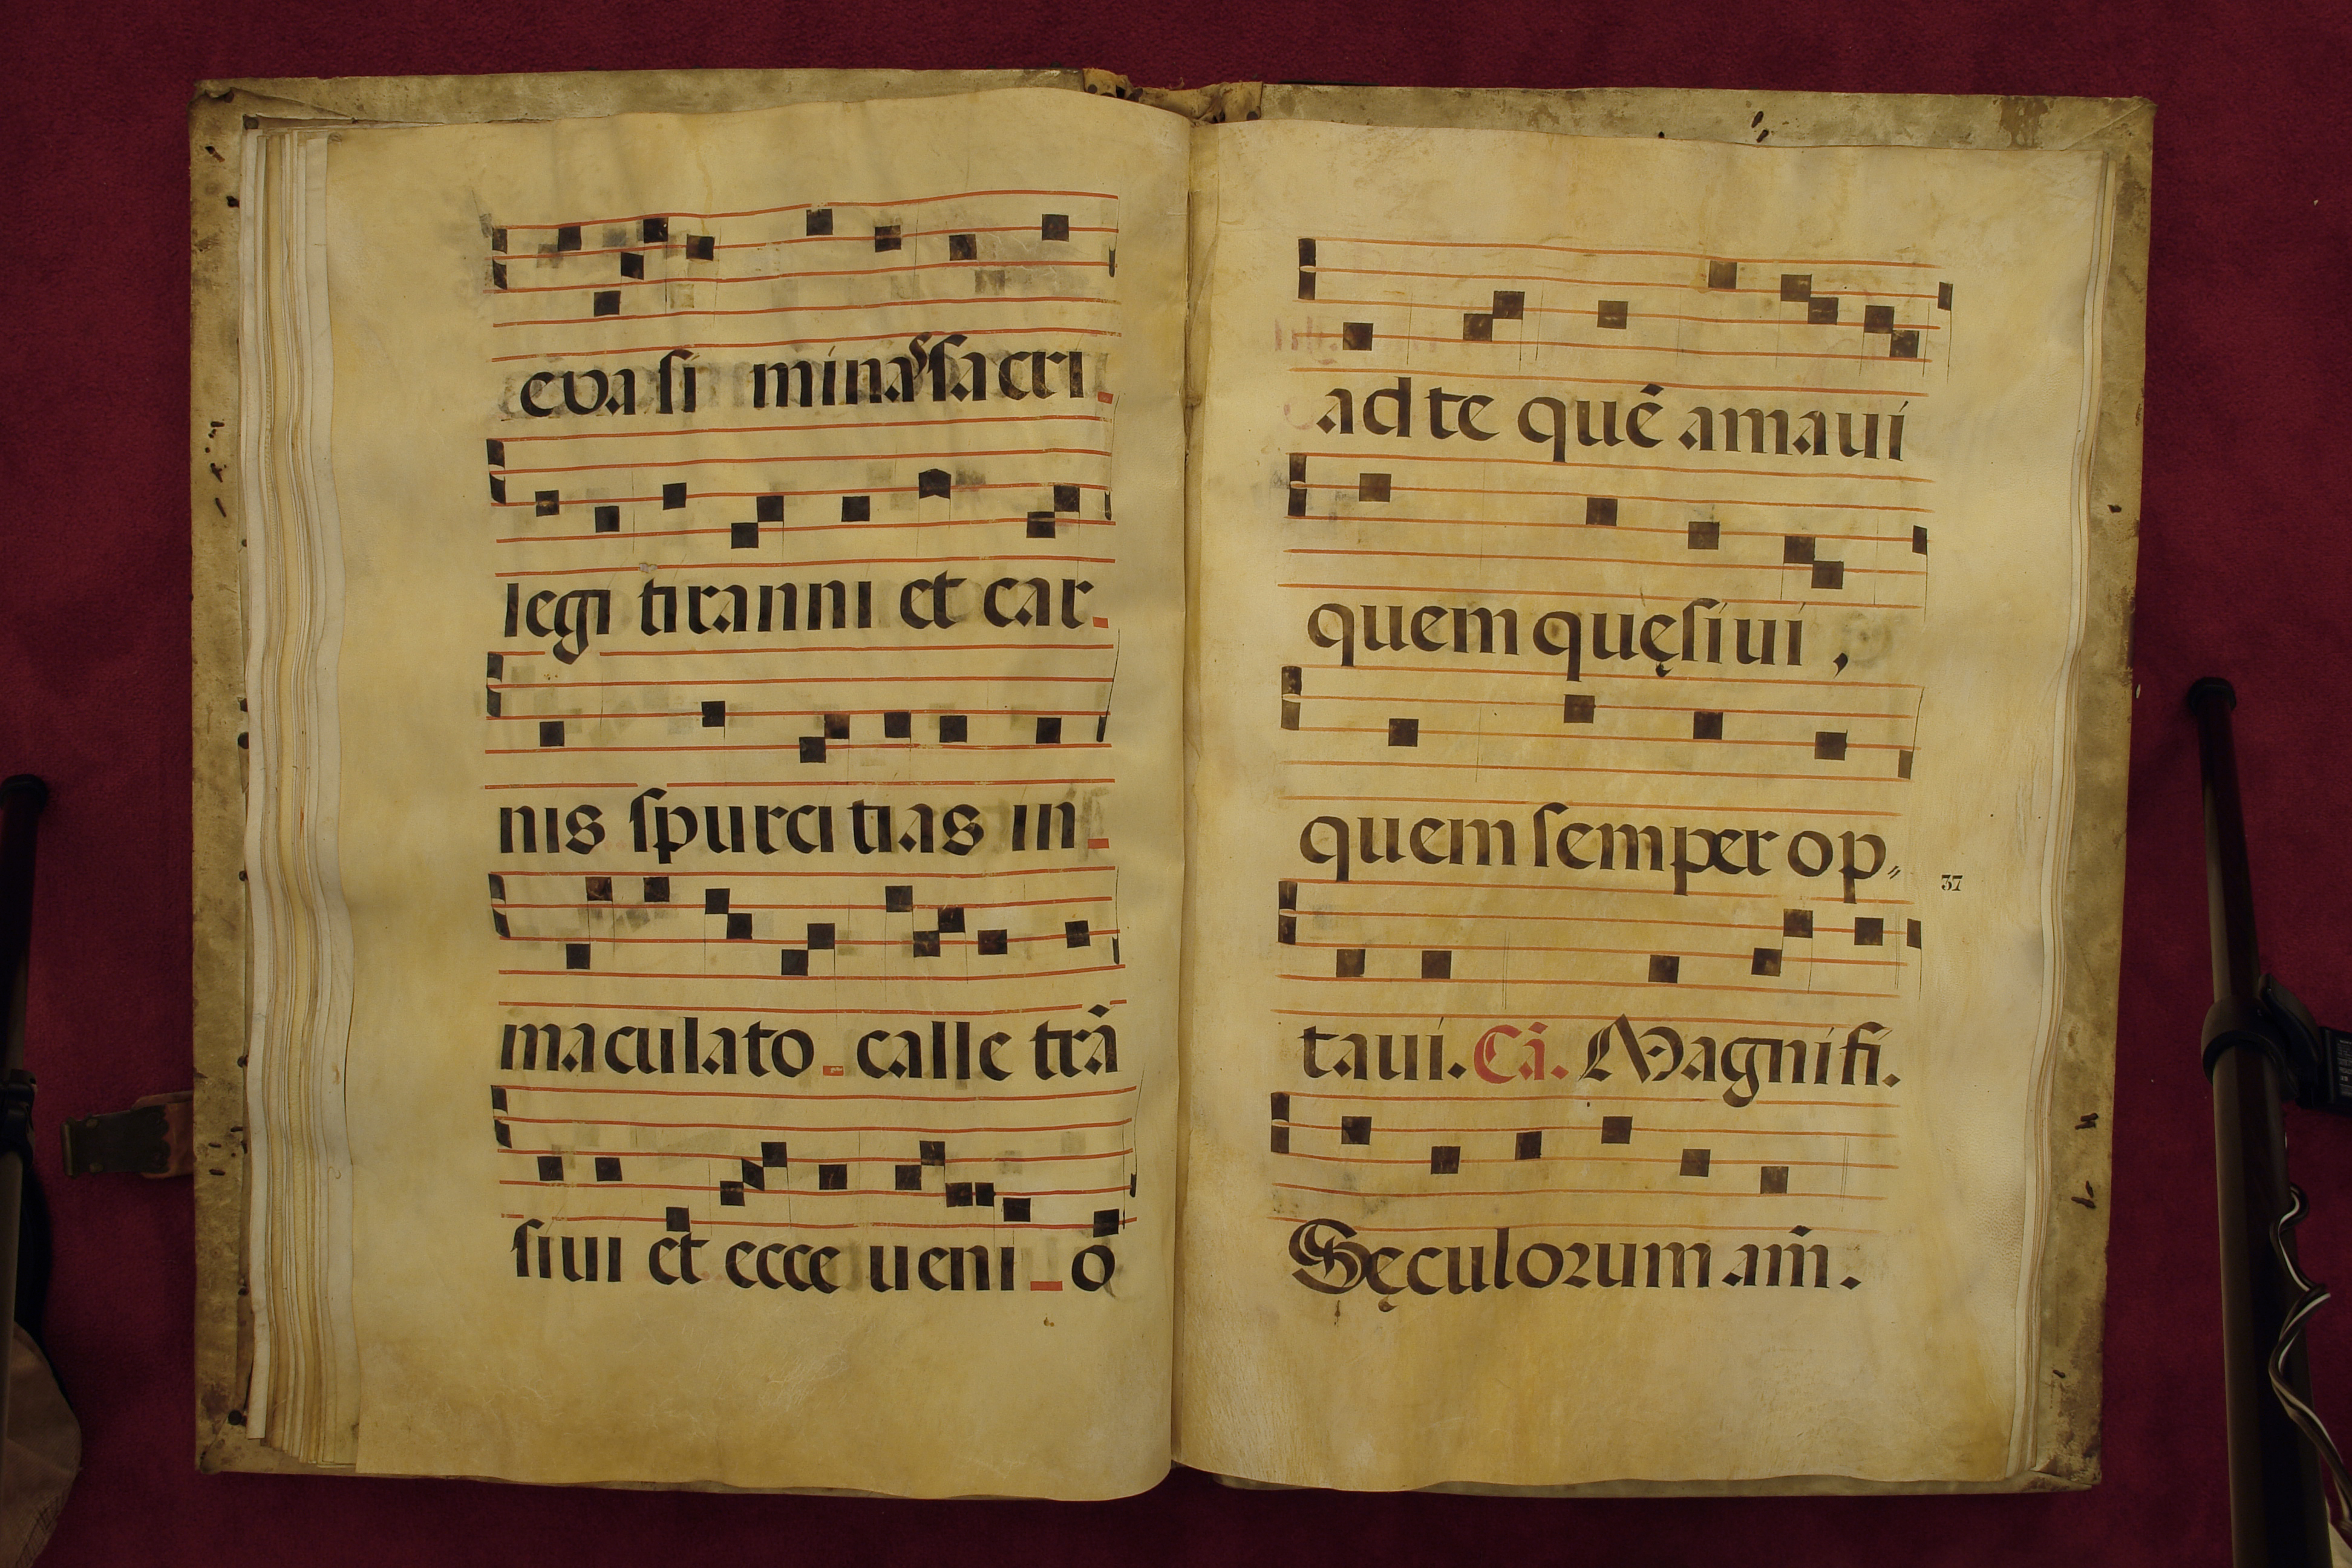 eva si minas sacri
legi tiranni et car
nis spurci tias in
maculato calle trā
siui et ecce ueni o
ad te quē amaui
quem quęsiui,
quem semper op
37
taui. Cā. Magnifi.
Sęculorum am̄.